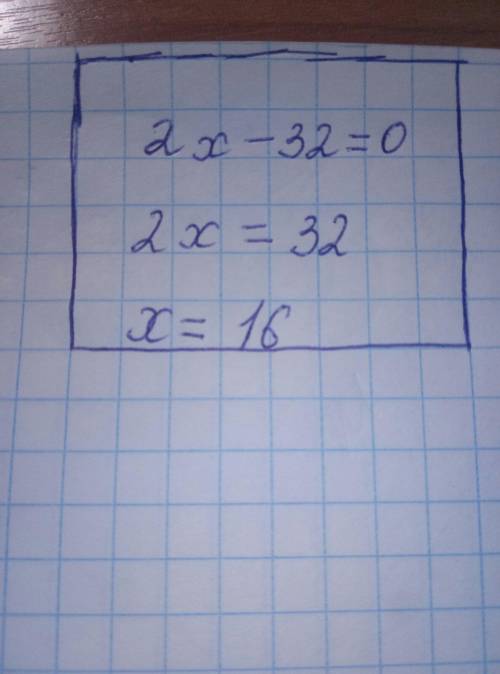 2x - 32 = 0
2x = 32
x = 16